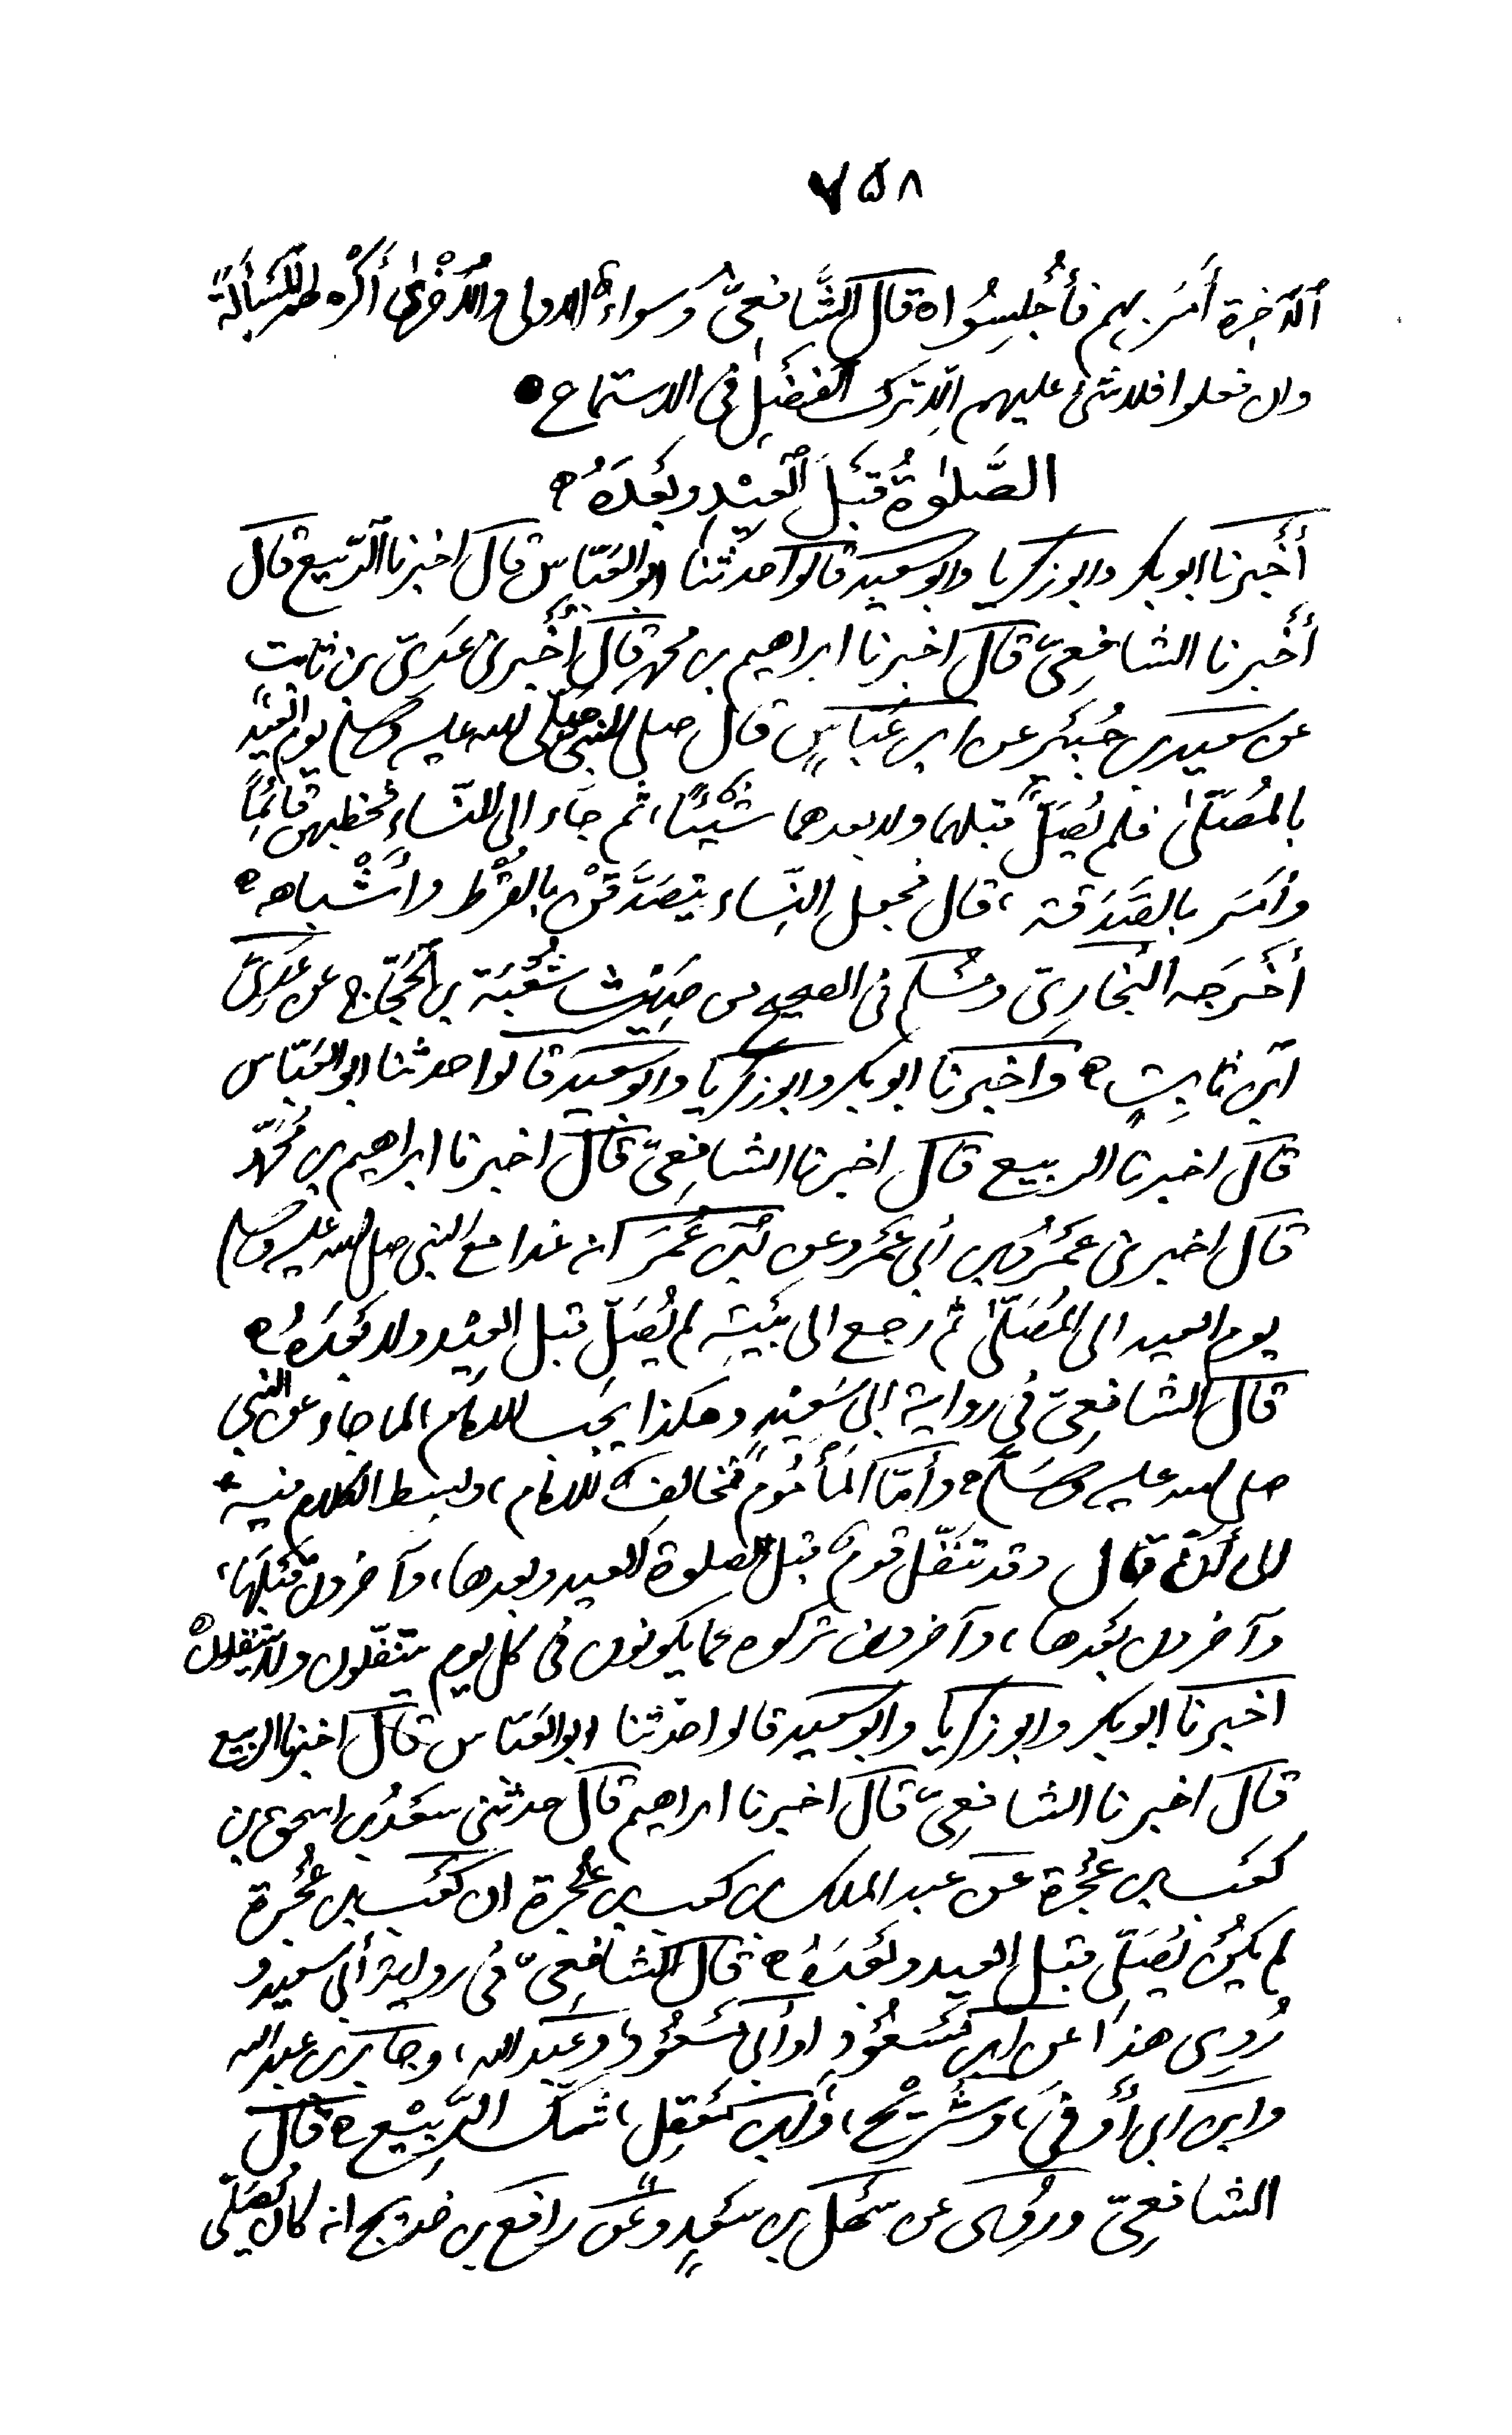 ٧٥٨
الآخرة أمر بهم فأجلسوا ه قال الشافعي وسواء الاولى والأخرى أكره لهم المسألة
وان فعلوا فلا شئ عليهم الا ترك الفضل في الاستماع ●
الصلوة قبل العيد وبعده ه
أخبرنا ابو بكر وابو زكريا وابو سعيد قالوا حدثنا ابو العباس قال اخبرنا الربيع قال
أخبرنا الشافعي قال اخبرنا ابراهيم بن محمد قال أخبرني عدي بن ثابت
عن سعيد بن جبير عن ابن عباس قال صلى النبي صلى الله عليه وسلم يوم العيد
بالمصلى فلم يصل قبلها ولا بعدها شيئا، ثم جاء الى النساء فخطبهن قائما
وأمر بالصدقة، قال فجعل النساء يتصدقن بالقرط وأشباهه ه
أخرجه البخاري ومسلم في الصحيح من حديث شعبة بن الحجاج عن عدي
ابن ثابت ه وأخبرنا ابو بكر وابو زكريا وابو سعيد قالوا حدثنا ابو العباس
قال اخبرنا الربيع قال اخبرنا الشافعي قال اخبرنا ابراهيم بن محمد
قال اخبرني عمرو بن أبي عمرو عن ابن عمر انه غدا مع النبي صلى الله عليه وسلم
يوم العيد الى المصلى ثم رجع الى بيته لم يصل قبل العيد ولا بعده ه
قال الشافعي في رواية ابي سعيد وهكذا يجب للامام لما جاء عن النبي
صلى الله عليه وسلم ه وأما المأموم فمخالف للامام، وبسط الكلام فيه
الى أن قال وقد تنفل قوم قبل صلوة العيد وبعدها، وآخرون قبلها،
وآخرون بعدها، وآخرون تركوه كما يكونون في كل يوم يتنفلون ولا يتنفلون ه
اخبرنا ابو بكر وابو زكريا وابو سعيد قالوا حدثنا ابو العباس قال اخبرنا الربيع
قال اخبرنا الشافعي قال اخبرنا ابراهيم قال حدثني سعد بن اسحق بن
كعب بن عجرة عن عبد الملك بن كعب بن عجرة ان كعب بن عجرة
لم يكن يصلي قبل العيد وبعده ه قال الشافعي في رواية أبي سعيد و
روي هذا عن ابن مسعود او أبي مسعود، وعبد الله، وجابر بن عبد الله
وابن ابي أوفى، وشريح، وابن معقل، شك الربيع ه قال
الشافعي وروى عن سهل بن سعد وعن رافع بن خديج انه كان يصلي